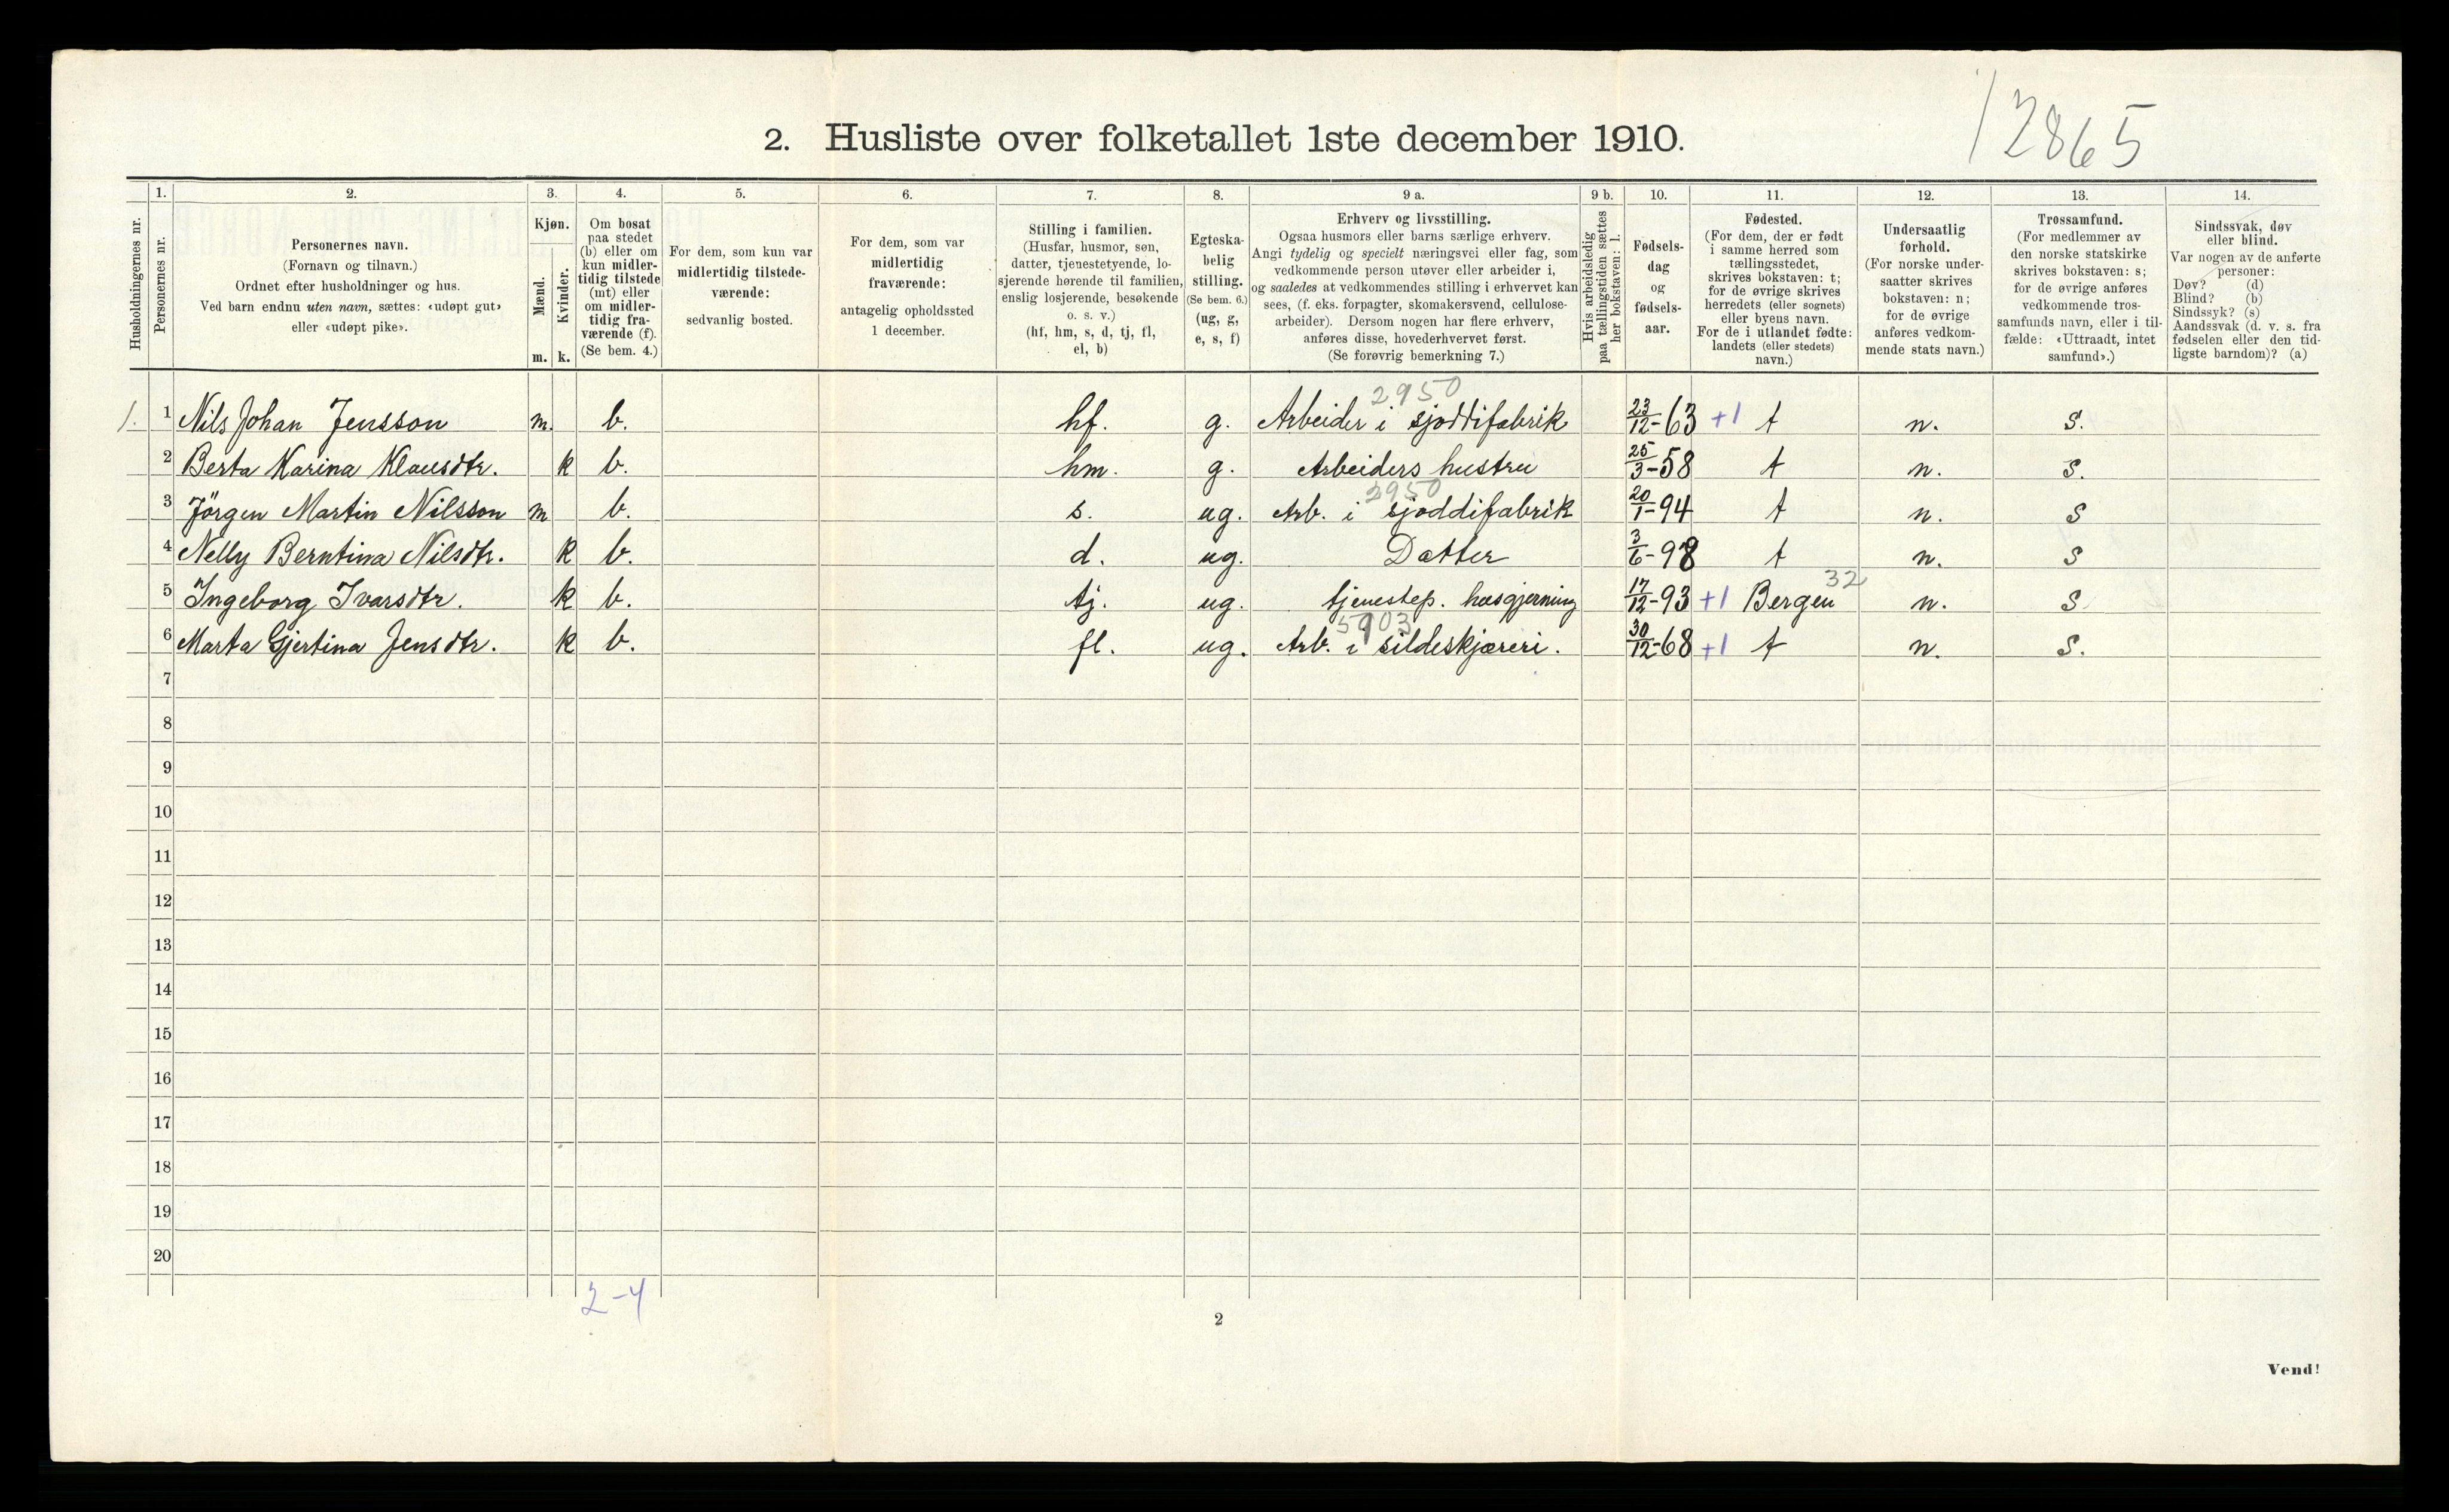 12865
2. Husliste over folketallet 1ste december 1910.
Husholdningernes nr.
1.
Personernes nr.
2.
Personernes navn.
(Fornavn og tilnavn.)
Ordnet efter husholdninger og hus.
Ved barn endnu uten navn, sættes: «udøpt gut»
eller «udøpt pike».
3.
Kjøn.
Mænd.
Kvinder.
m. k.
4.
Om bosat
paa stedet
(b) eller om
kun midler-
tidig tilstede
(mt) eller
om midler-
tidig fra-
værende (f).
(Se bem. 4.)
5.
For dem, som kun var
midlertidig tilstede-
værende:
sedvanlig bosted.
6.
For dem, som var
midlertidig
fraværende:
antagelig opholdssted
1 december.
7.
Stilling i familien.
(Husfar, husmor, søn,
datter, tjenestetyende, lo-
sjerende hørende til familien,
enslig losjerende, besøkende
o. s. v.)
(hf, hm, s, d, tj, fl,
el, b)
8.
Egteska-
belig
stilling.
(Se bem. 6.)
(ug, g,
e, s, f)
9 a.
Erhverv og livsstilling.
Ogsaa husmors eller barns særlige erhverv.
Angi tydelig og specielt næringsvei eller fag, som
vedkommende person utøver eller arbeider i,
og saaledes at vedkommendes stilling i erhvervet kan
sees, (f. eks. forpagter, skomakersvend, cellulose-
arbeider). Dersom nogen har flere erhverv,
anføres disse, hovederhvervet først.
(Se forøvrig bemerkning 7.)
9 b.
Hvis arbeidsledig
paa tællingstiden sættes
her bokstaven: l.
10.
Fødsels-
dag
og
fødsels-
aar.
11.
Fødested.
(For dem, der er født
i samme herred som
tællingsstedet,
skrives bokstaven: t;
for de øvrige skrives
herredets (eller sognets)
eller byens navn.
For de i utlandet fødte:
landets (eller stedets)
navn.)
12.
Undersaatlig
forhold.
(For norske under-
saatter skrives
bokstaven: n;
for de øvrige
anføres vedkom-
mende stats navn.)
13.
Trossamfund.
(For medlemmer av
den norske statskirke
skrives bokstaven: s;
for de øvrige anføres
vedkommende tros-
samfunds navn, eller i til-
fælde: «Uttraadt, intet
samfund».)
14.
Sindssvak, døv
eller blind.
Var nogen av de anførte
personer:
Døv? (d)
Blind? (b)
Sindssyk? (s)
Aandssvak (d. v. s. fra
fødselen eller den tid-
ligste barndom)? (a)
2950
1. 1 Nils Johan Jensson m. b. hf. g. Arbeider i sjoddifabrik 23/12-63 +1 t n. S.
2 Berta Karina Klausdtr. k b. hm. g. Arbeiders hustru 25/3-58 t n. S.
2950
3 Jörgen Martin Nilsson m b. s. ug. Arb. i sjoddifabrik 20/1-94 t n. S
4 Nelly Berntina Nilsdtr. k b. d. ug. Datter 3/6-98 t n. S
32
5 Ingeborg Ivarsdtr. k b. tj. ug. tjenestep. husgjerning 17/12-93 +1 Bergen n. S
5903
6 Marta Gjertina Jensdtr. k b. fl. ug. Arb. i sildeskjæreri. 30/12-68 +1 t n. S.
7
8
9
10
11
12
13
14
15
16
17
18
19
20
2-4
2
Vend!